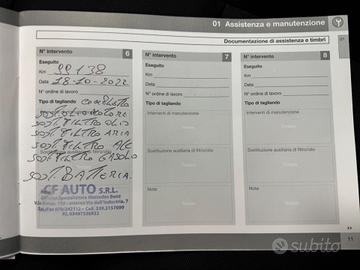 01 Assistenza e manutenzione
Documentazione di assistenza e timbri
N° intervento 6
Eseguito
Km 99138
Data 28-10-2022
N° ordine di lavoro
Tipo di tagliando COMPLETO
SOST. OLIO MOTORE
SOST. FILTRO OLIO
SOST. FILTRO ARIA
SOST. FILTRO A/C
SOST. FILTRO GASOLIO
SOST. BATTERIA
CF AUTO S.R.L.
Officina Specializzata Mercedes Benz
P.I. 03497530922
N° intervento 7
Eseguito
Km
Data
N° ordine di lavoro
Tipo di tagliando
Interventi di manutenzione
Sostituzione ausiliaria di filtro/olio
Note
N° intervento 8
Eseguito
Km
Data
N° ordine di lavoro
Tipo di tagliando
Interventi di manutenzione
Sostituzione ausiliaria di filtro/olio
Note
11
subito